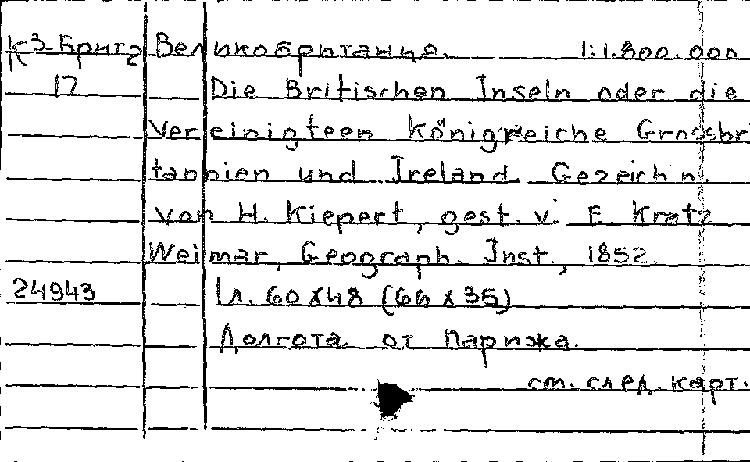 К3-Брит Великобритания. 1:1.800.000
17 Die Britischen Inseln oder die
Vereinigteen Königreiche Grossbri
tannien und Ireland Gezeichn.
von H. Kiepert, gest. v. F. Kratz
Weimar, Geograph. Inst., 1852.
24943 1 л. 60x48 (66x35)
Долгота от Парижа.
см. след. карт.